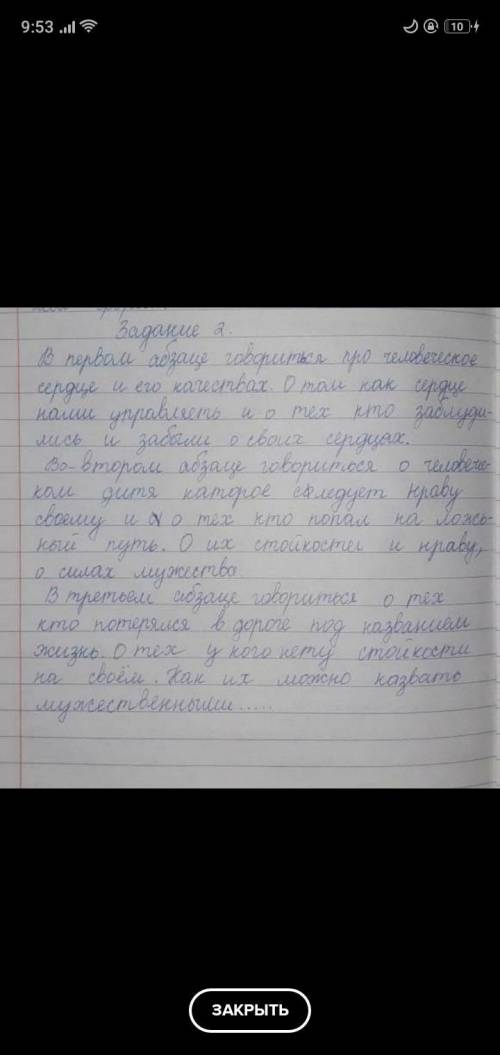 9:53
10
Задание 2.
В первом абзаце говориться про человеческое
сердце и его качествах. О том как сердце
нами управлять и о тех кто заблуди-
лись и забыли о своих сердцах.
Во-втором абзаце говориться о человечес-
ком дитя каторое следует нраву
своему и о тех кто попал на ложь-
ный путь. О их стойкости и нраву,
о силах мужества.
В третьем абзаце говориться о тех
кто потерялся в дороге под названием
жизнь. О тех у кого нету стойкости
на своём. Как их можно назвать
мужественными.....
ЗАКРЫТЬ